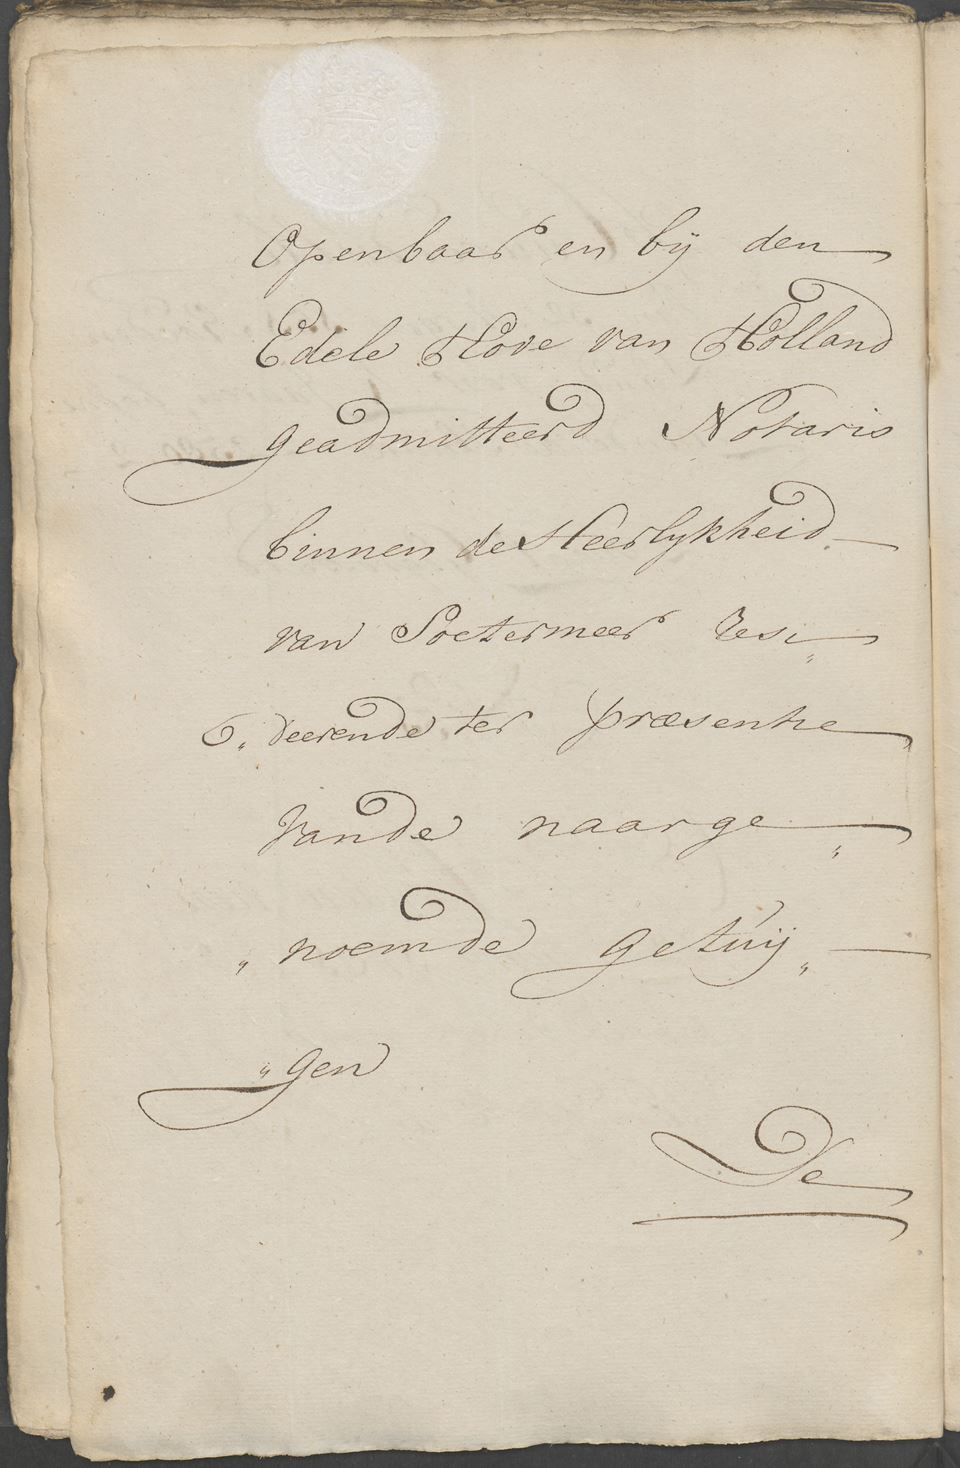 Openbaar en bij den
Edele Hove van Holland
geadmitteerd Notaris
binnen de Heerlykheid
van Soetermeer resi„
„deerende ter præsentie
vande naarge„
„noemde getuij„
„gen
De